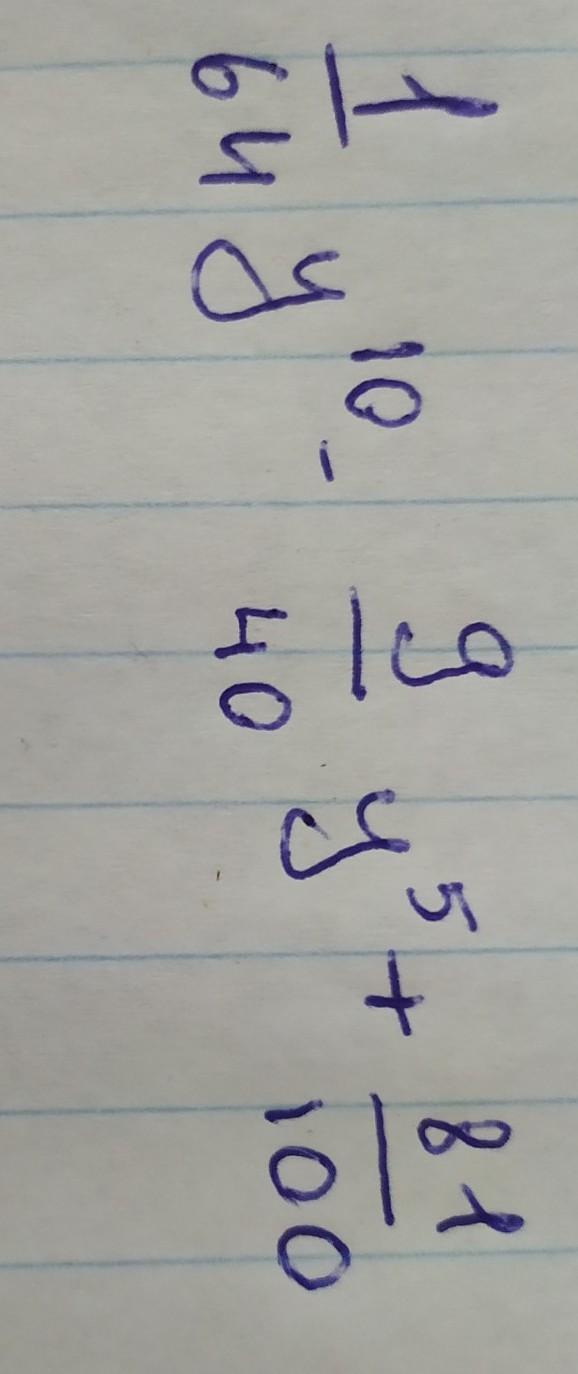 1/64 y^10 - 9/40 y^5 + 81/100